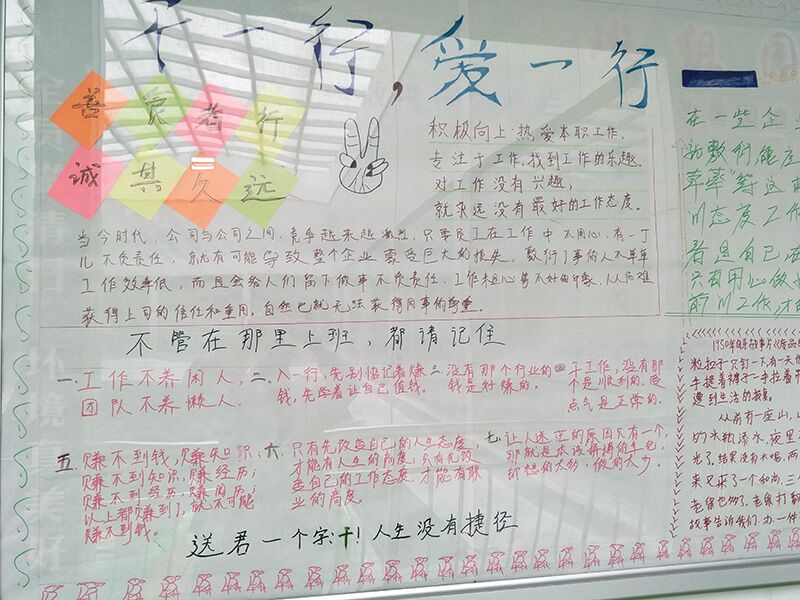 干一行，爱一行
善良者行
诚其久远
积极向上，热爱本职工作，
专注于工作，找到工作的乐趣，
对工作没有兴趣，
就永远没有最好的工作态度。
当今时代，公司与公司之间，竞争越来越激烈，只要员工在工作中不用心，有一丁
儿不负责任，就有可能导致整个企业蒙受巨大的损失，敷衍了事的人不单单
工作效率低，而且会给人们留下做事不负责任、工作粗心等不好的印象，从而难
获得上司的信任和重用，自然也就无法获得同事的尊重。
不管在那里上班，都请记住
一、工作不养闲人，
团队不养懒人。
二、入一行，先别惦记着赚
钱，先学着让自己值钱。
三、没有那个行业的
钱是好赚的。
四、干工作，没有那
个是顺利的，受
点气是正常的。
五、赚不到钱，赚知识；
赚不到知识，赚经历；
赚不到经历，赚阅历；
以上都赚到了，就不可能
赚不到钱。
六、只有先改变自己的人生态度，
才能有人生的高度，只有先改
变自己的工作态度，才能有职
业的高度。
七、让人迷茫的原因只有一个
那就是本该拼搏的年纪，
却想的太多，做的太少。
送君一个字：干！人生没有捷径
在一些企业
态度工作
看是自己在
只有用心做
前川工作，才
粒扣子只钉一下，有一天
手提着裤子一手拉着吊
遭到生活的报复。
从前有一座山，山
的水瓶添水，夜里
光了。结果没有水喝，两
来又来了一个和尚，三个
故事告诉我们：办一件